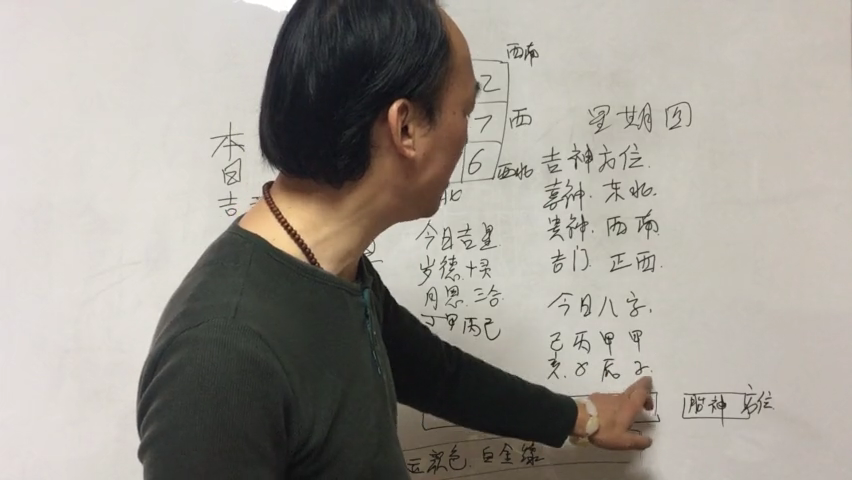 西南
2
7 西
6 西北
北
本
日
吉
星期四
吉神方位.
喜神. 东北.
贵神. 西南
吉门. 正西.
今日吉星
岁德. 十灵
月恩. 三合
丁甲丙己
今日八字.
己丙甲甲
亥.子辰子.
胎神 方位
色. 白金